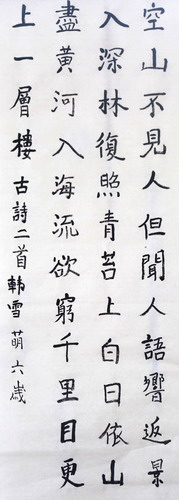 空山不見人但聞人語響返景
入深林復照青苔上白日依山
盡黃河入海流欲窮千里目更
上一層樓古詩二首韓雪萌六歲